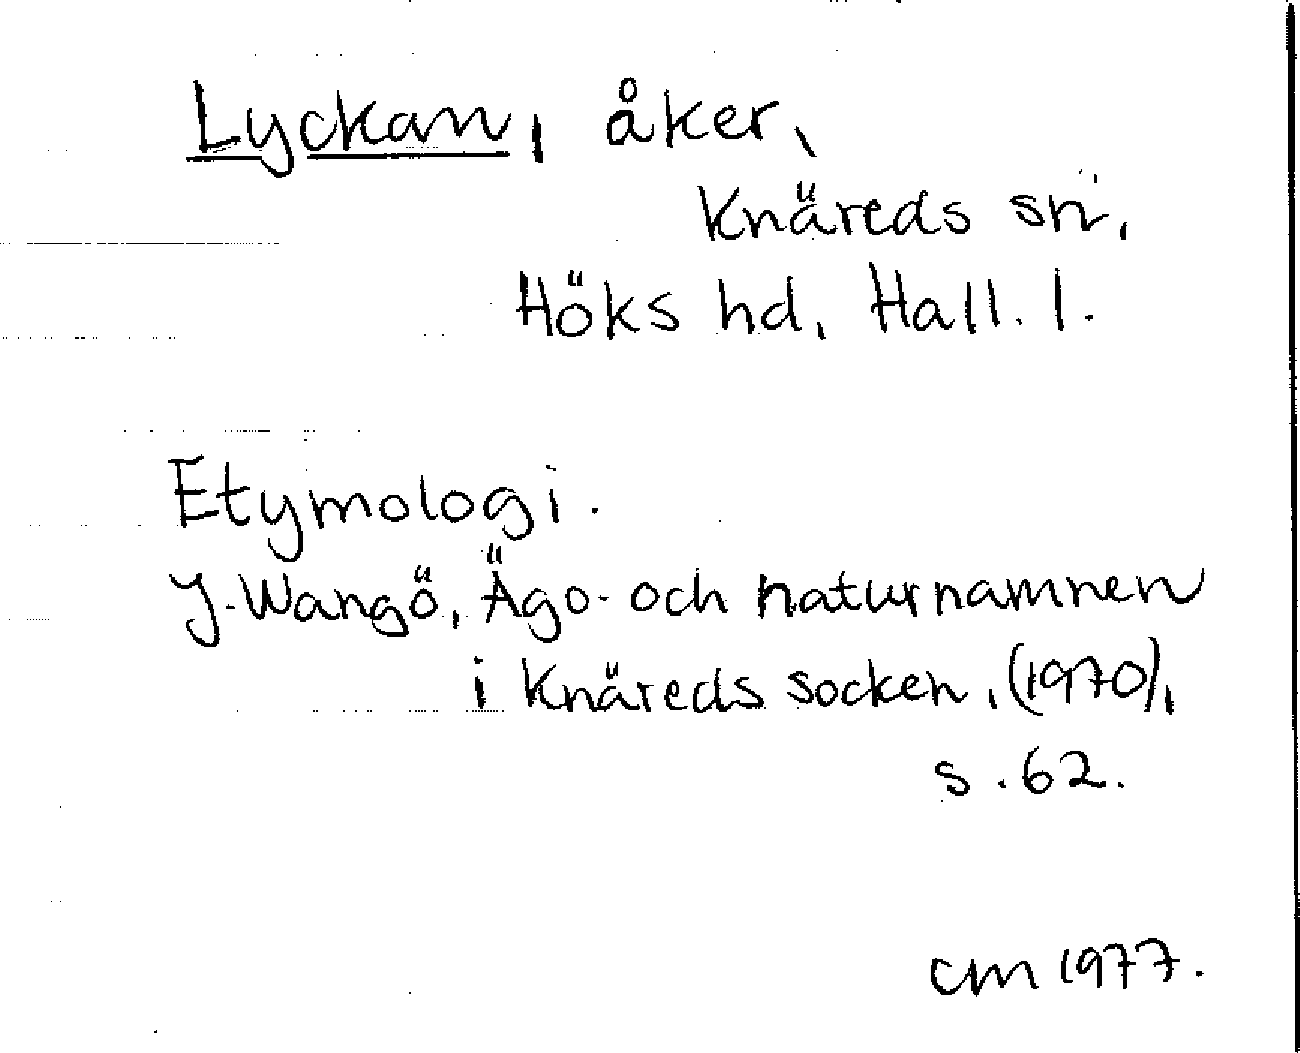 Lyckan, åker,
Knäreds sn,
Höks hd, Hall. l.
Etymologi.
J. Wangö, Ägo- och naturnamnen
i Knäreds socken, (1970),
s. 62.
cm 1977.